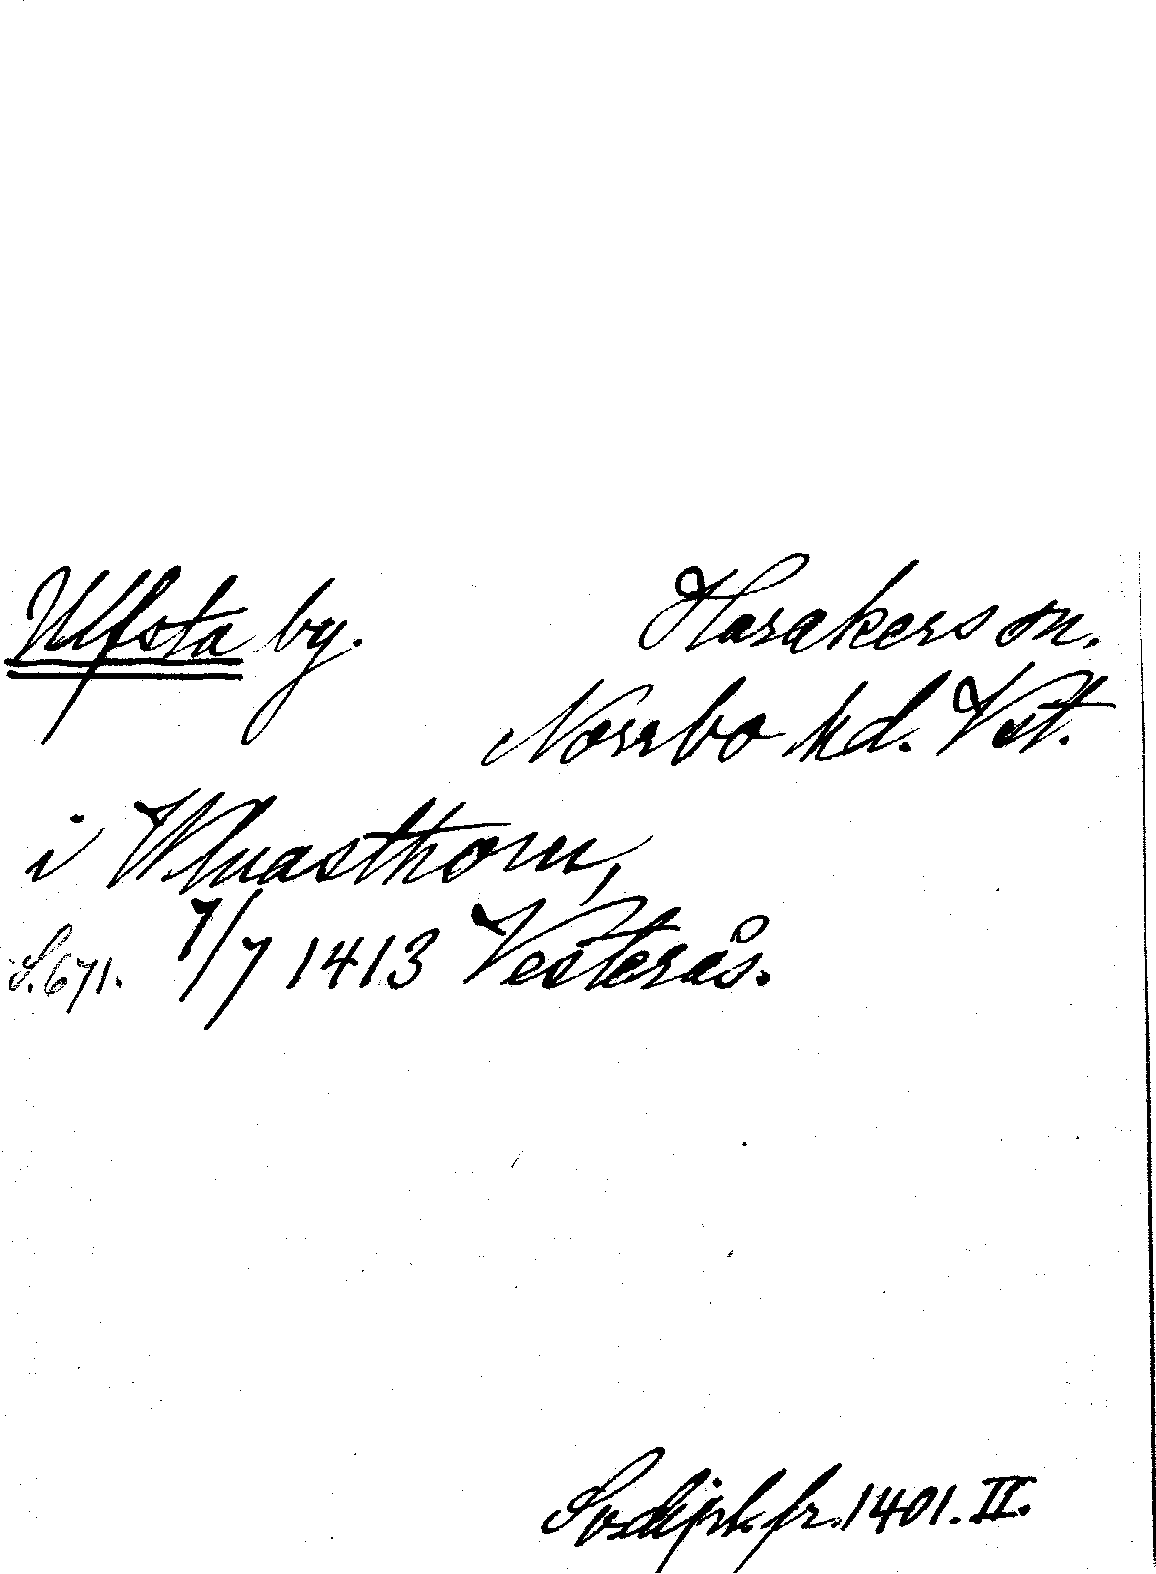 Ulfsta by. Harakers sn.
Norrbo hd. Vst.
i Wluasthom,
S. 671. 7/7 1413 Vesterås.
Sv dipl. fr. 1401. II.